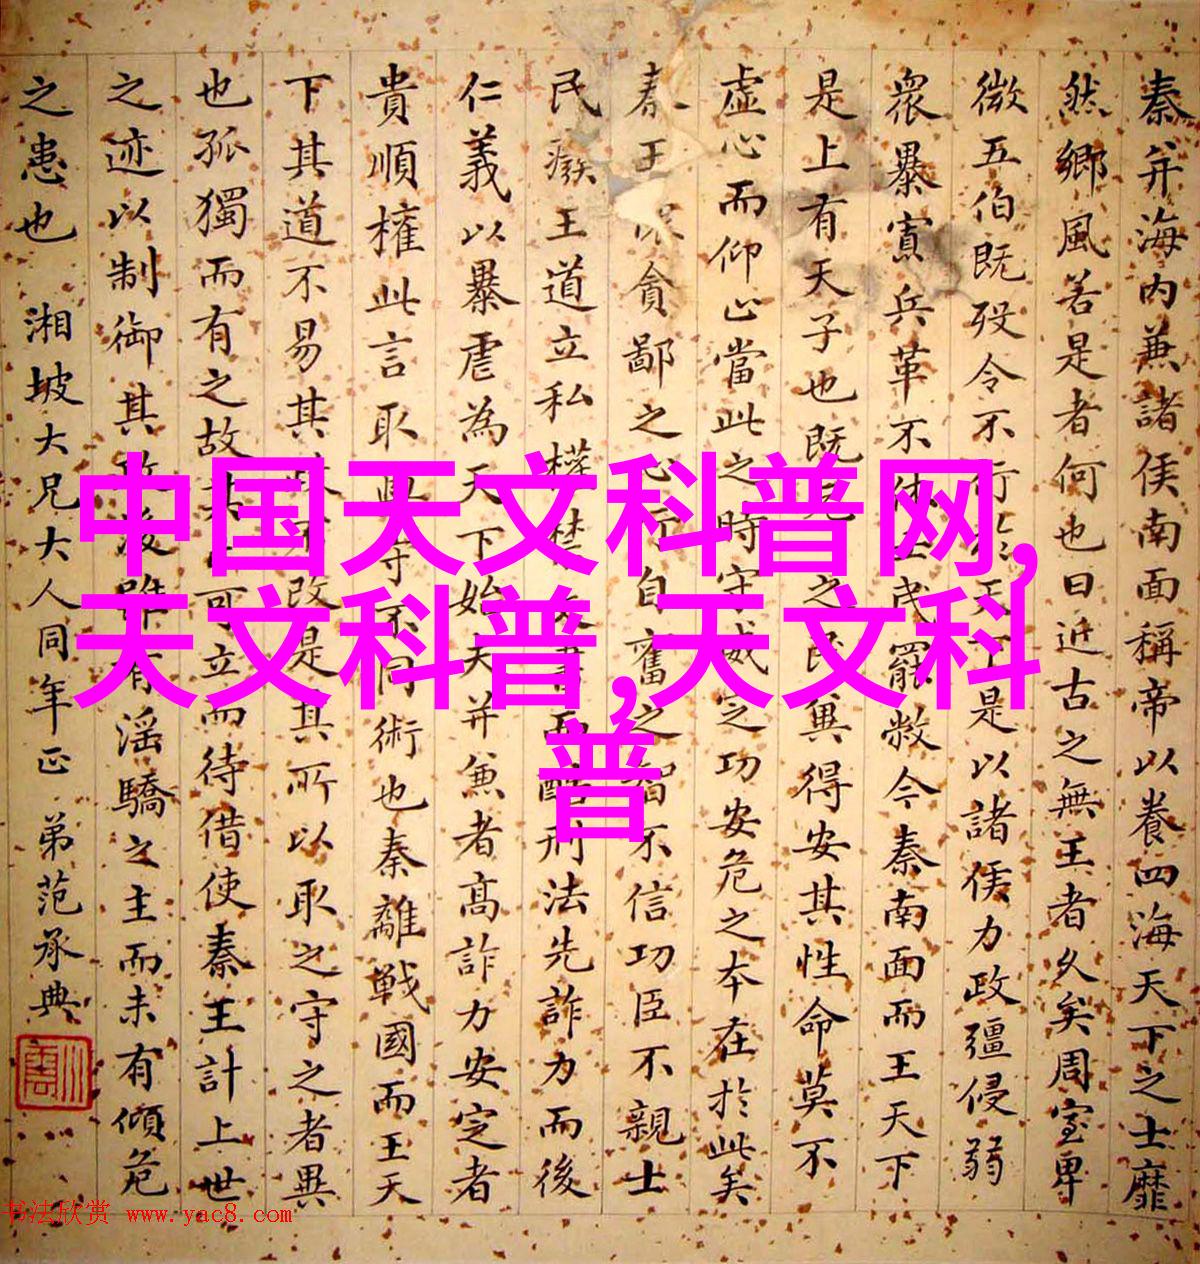 秦并海内兼諸侯南面稱帝以養四海天下之士靡
然鄉風若是者何也曰近古之無王者久矣周室卑
微五伯既殁令不行於天下是以諸侯力政彊侵弱
衆暴寡兵革不休士民罷敝今秦南面而王天下
是上有天子也既元之民兾得安其性命莫不
虚心而仰止當此之時守威定功安危之本在於此矣
秦王懷貪鄙之心行自奮之智不信功臣不親士
民廢王道立私權禁文書而酷刑法先詐力而後
仁義以暴虐為天下始夫并兼者高詐力安定者
貴順權此言取與守不同術也秦離戰國而王天
下其道不易其政不改是其所以取之守之者異
也孤獨而有之故其可立而待借使秦王計上世
之迹以制御其政後雖有淫驕之主而未有傾危
之患也 湘坡大兄大人同年正 弟范承典
中国天文科普网,
天文科普,天文科
普
书法欣赏 www.yac8.com